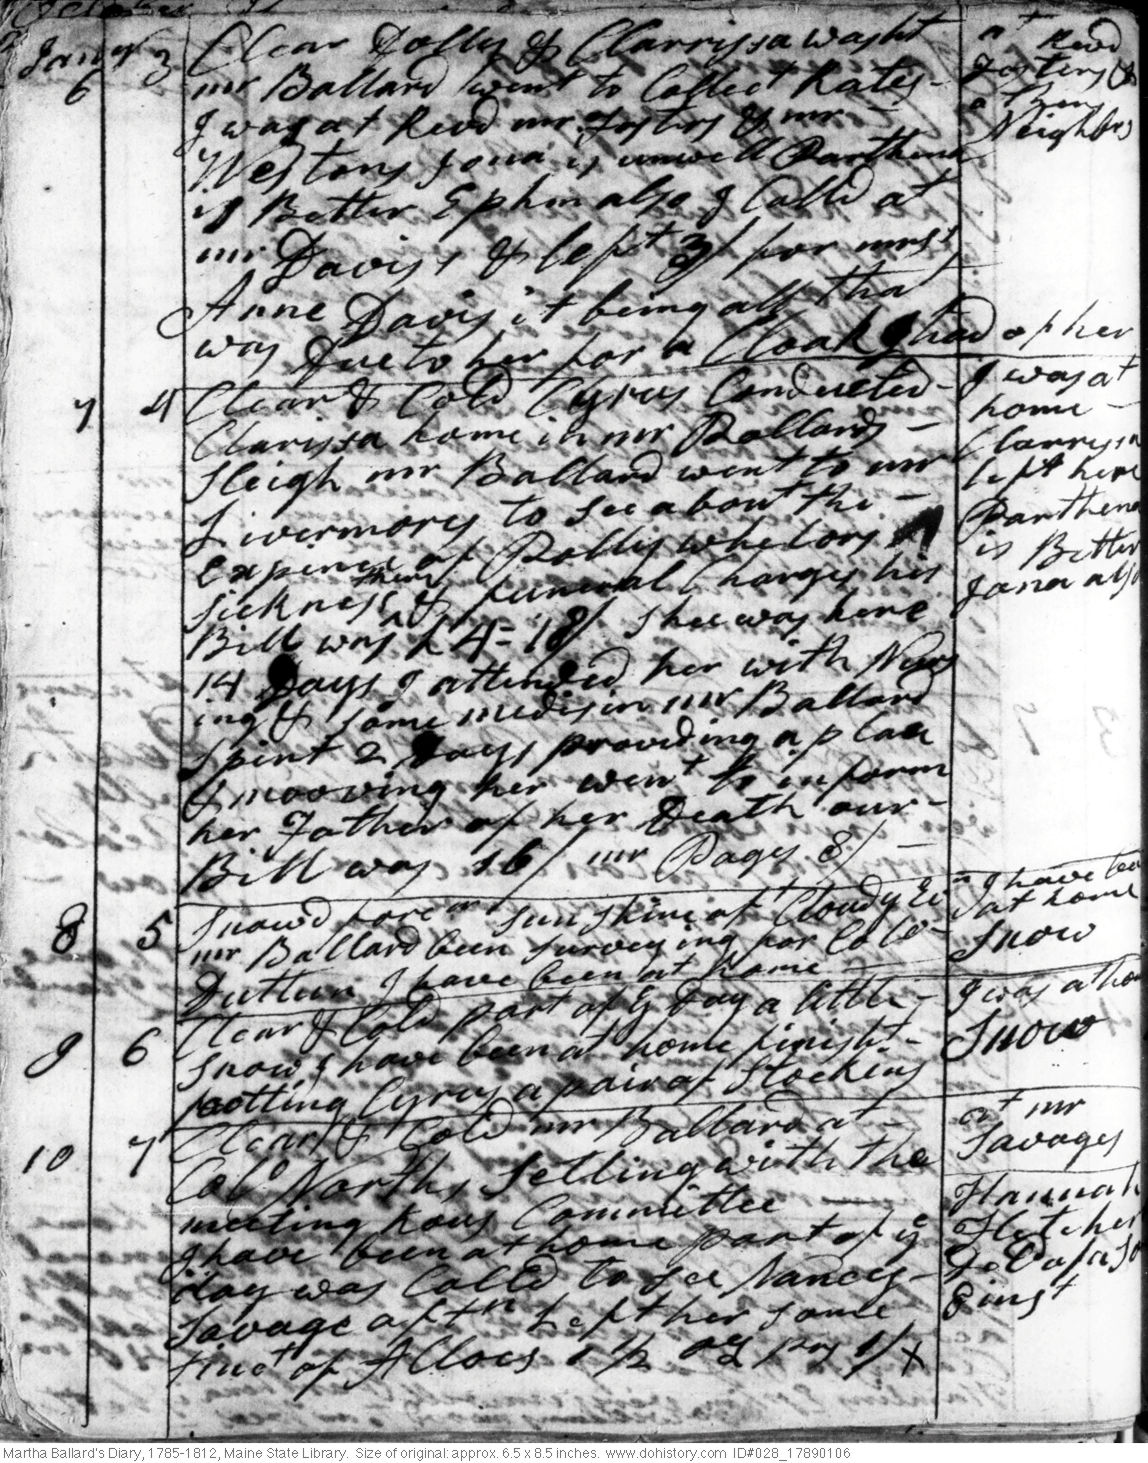 Janry
6 3 Clear Dolly & Clarrissa washt
mr Ballard went to Collect Rates -
I was at Revd mr Fosters & mr -
Westons Jona is unwell Parthena
is Better Ephm also I Calld at
mr Davis s & left 3/ for mrs
Anne Davis it being all that
was Due to her for a Cloak I had of her
at Revd
Fosters &
other
Neighbrs
7 4 Clear & Cold Cyrus Conducted -
Clarissa home in mr Pollards -
Sleigh mr Ballard went to mr
Livermores to see about the -
Expence of Polly whelors
sickness & funeral Charges his
there
Bill was £ 4 = 18/ Shee was here
14 Days I attended her with Nurs
ing & some medisin mr Ballard
spint 2 Days providing a place
& mooving her went to inform
her Father of her Death our -
Bill was 16/ mr Pages 8/ -
I was at
home -
Clarrysa
left here
Parthena
is Better
Jana also
8 5 Snowd forenn sun shine aft Cloudy Ev
mr Ballard been surveying for Colo -
Dutten I have been at home -
I have been
at home
Snow
9 6 Clear & Cold part of ye Day a little -
Snow I have been at home finisht -
footting Cyrus a pair of Stockins
I was at hom
Snow
10 7 Clear & Cold mr Ballard at -
Colo Norths Setling with the
meeting hous Committee -
I have been at home part of ye
day was Calld to see Nancy -
Savage aftn Left her some
tinct of Alloes 1 1/2 oz pr 1/ x
at mr
Savages
Hannah
Fletcher
8 inst
Martha Ballard's Diary, 1785-1812, Maine State Library. Size of original: approx. 6.5 x 8.5 inches. www.dohistory.com ID#028_17890106